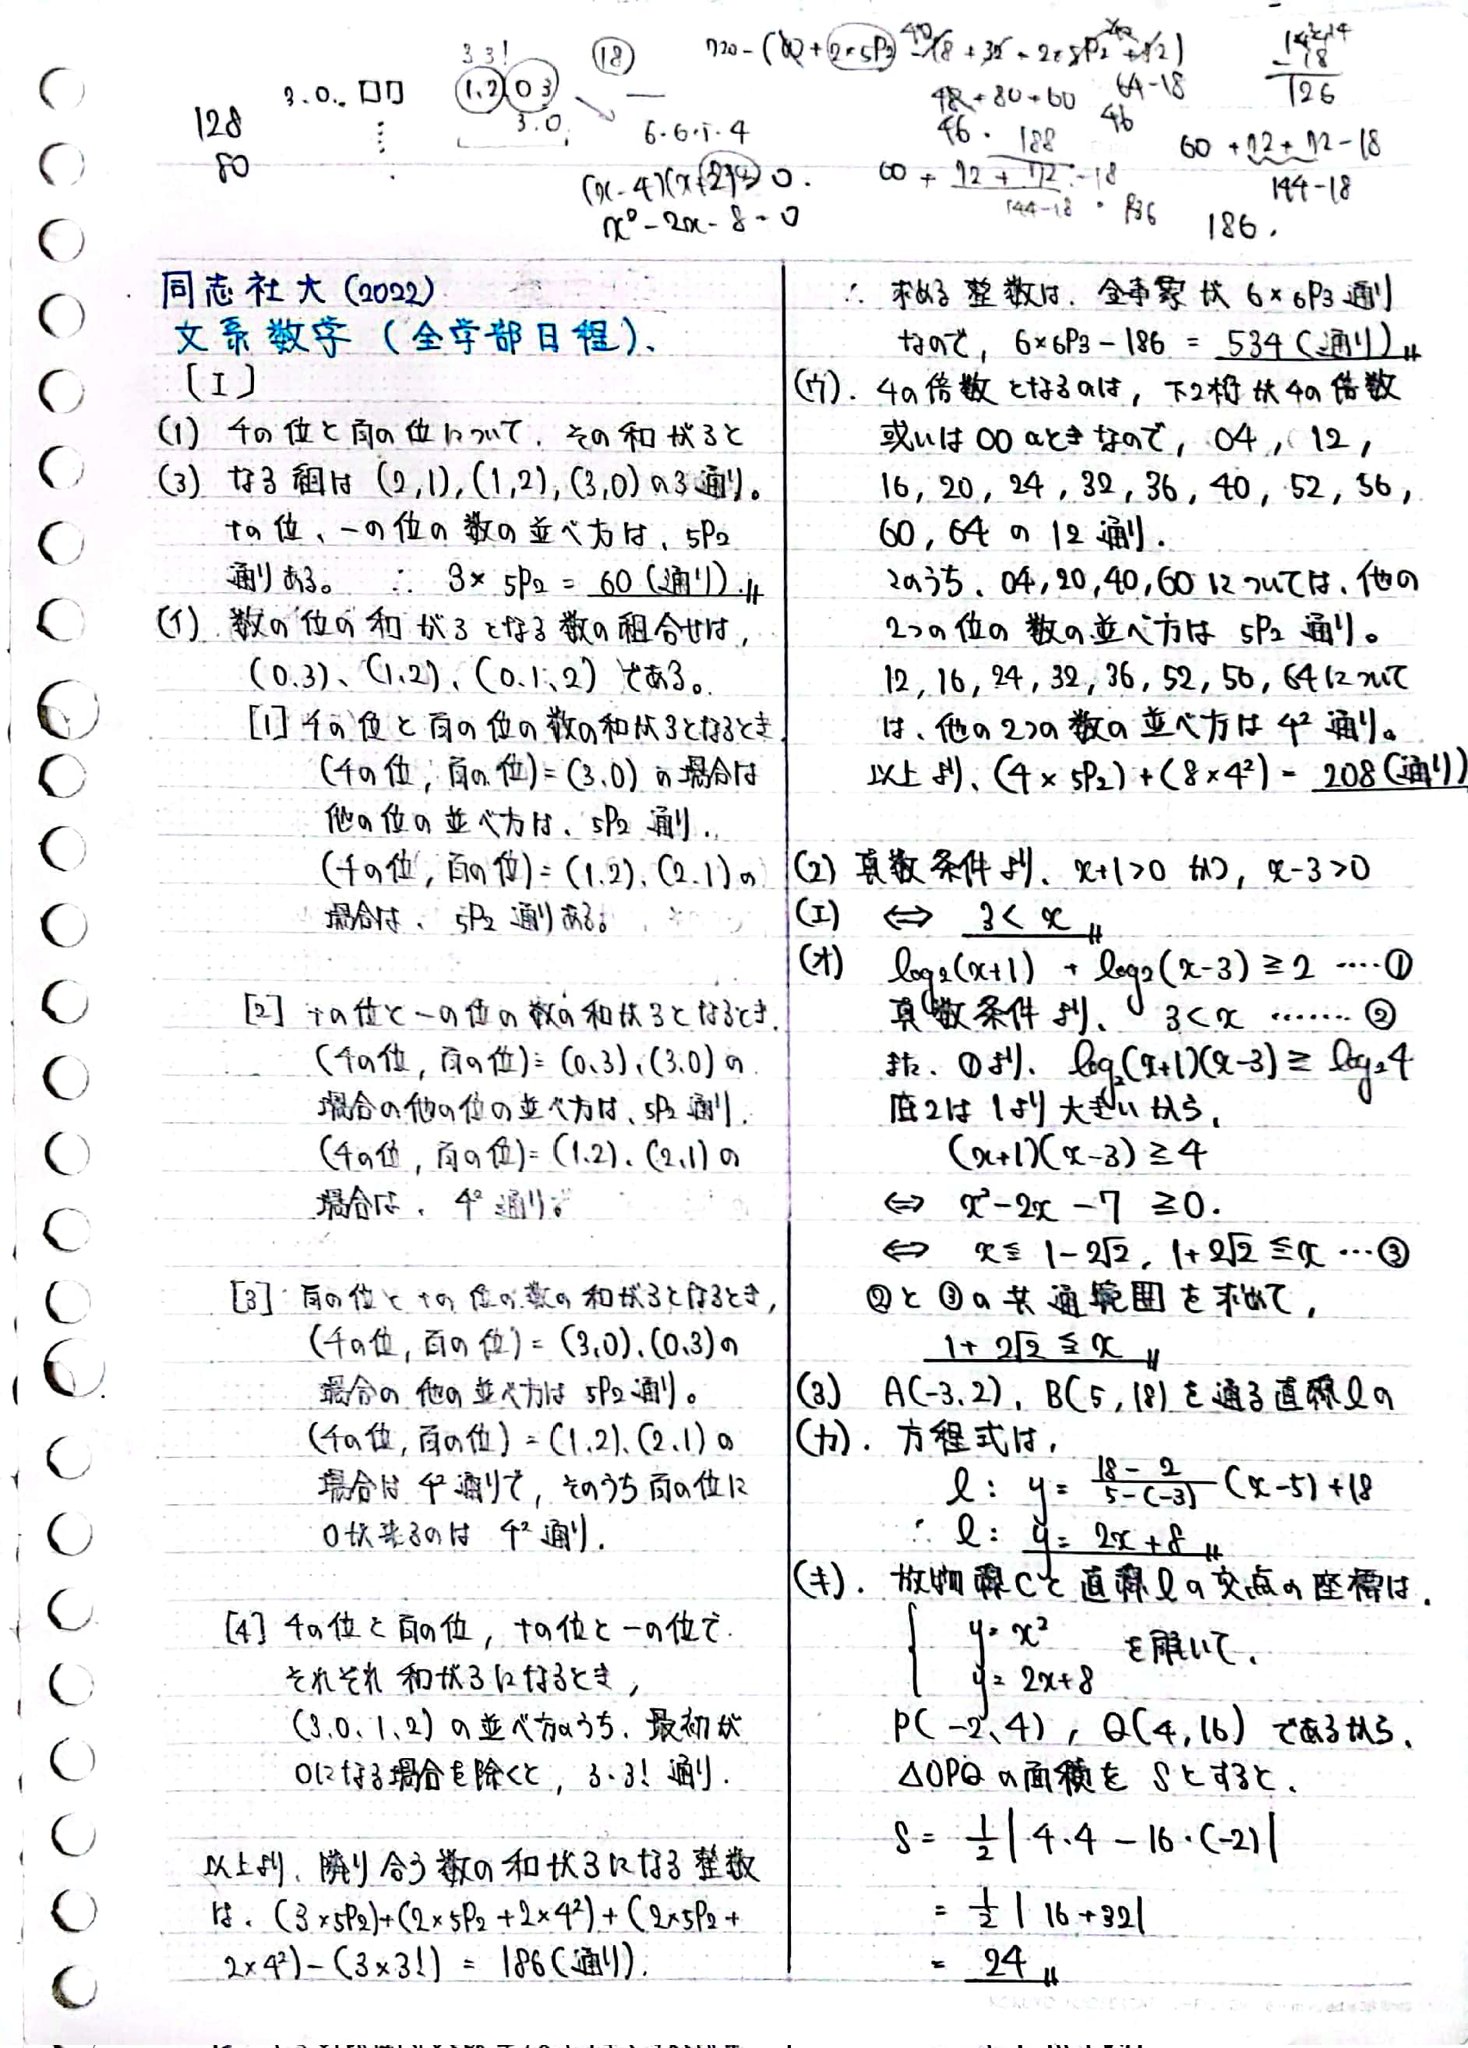 128
80
3.0. □□
3 3!
1.2 0 3
3.0.
18
6・6・5・4
(x-4)(x+2)=0.
x²-2x-8=0
48+80+60
64-18
46.
46
188
60+72+72-18
144-18
60+72+72-18
144-18
186.
-18
126
同志社大(2022)
文系数学(全学部日程)、
[I]
(1) 千の位と百の位について、その和が3と
(3) なる組は(2,1),(1,2),(3,0)の3通り。
十の位、一の位の数の並べ方は、5P2
通りある。 ∴ 3×5P2=60(通り).
(イ) 数の位の和が3となる数の組合せは,
(0.3)、(1.2)、(0.1、2)である。
[1] 千の位と百の位の数の和が3となるとき、
(千の位,百の位)=(3.0)の場合は
他の位の並べ方は、5P2通り.
(千の位,百の位)=(1.2)、(2.1)の
場合は、5P2通りある。
[2] 十の位と一の位の数の和が3となるとき.
(千の位,百の位)=(0.3)、(3.0)の
場合の他の位の並べ方は、5P2通り.
(千の位,百の位)=(1.2)、(2.1)の
場合は、4²通り。
[3] 百の位と十の位の数の和が3となるとき,
(千の位,百の位)=(3,0)、(0.3)の
場合の他の並べ方は5P2通り。
(千の位,百の位)=(1.2)、(2.1)の
場合は4²通りで,そのうち百の位に
0が来るのは4²通り.
[4] 千の位と百の位,十の位と一の位で
それぞれ和が3になるとき,
(3.0.1.2)の並べ方のうち、最初が
0になる場合を除くと,3・3!通り.
以上より、隣り合う数の和が3になる整数
は、(3×5P2)+(2×5P2+2×4²)+(2×5P2+
2×4²)-(3×3!)=186(通り).
∴ 求める整数は、全事象が6×6P3通り
なので,6×6P3-186=534(通り)
(ウ). 4の倍数となるのは,下2桁が4の倍数
或いは00のときなので,04,12,
16,20,24,32,36,40,52,56,
60,64の12通り.
このうち、04,20,40,60については、他の
2つの位の数の並べ方は5P2通り。
12,16,24,32,36,52,56,64について
は、他の2つの数の並べ方は4²通り。
以上より、(4×5P2)+(8×4²)=208(通り)
(2) 真数条件より、x+1>0かつ,x-3>0
(エ) ⇔ 3<x
(オ) log₂(x+1)+log₂(x-3)≧2 ‥‥①
真数条件より、3<x ‥‥‥②
また、①より、log₂(x+1)(x-3)≧log₂4
底2は1より大きいから,
(x+1)(x-3)≧4
⇔ x²-2x-7≧0.
⇔ x≦1-2√2,1+2√2≦x ‥③
②と③の共通範囲を求めて,
1+2√2≦x
(3) A(-3,2),B(5,18)を通る直線lの
(カ). 方程式は,
l: y=18-2/5-(-3)(x-5)+18
∴ l: y=2x+8
(キ). 放物線Cと直線lの交点の座標は.
{ y=x²
y=2x+8 を解いて、
P(-2、4),Q(4,16)であるから、
△OPQの面積をSとすると、
S=1/2|4・4-16・(-2)|
=1/2|16+32|
=24